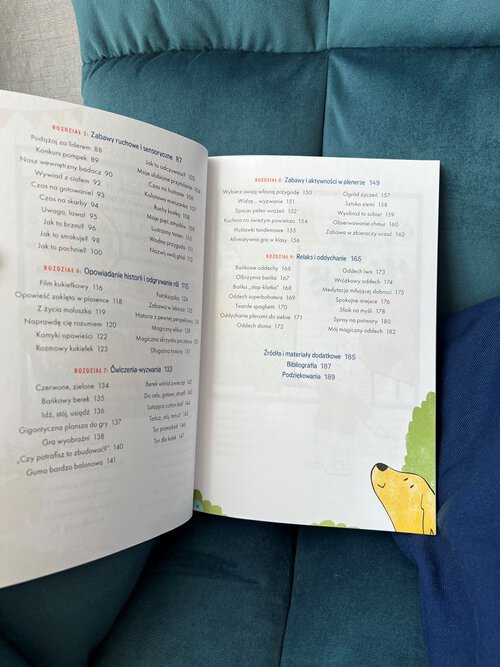 ROZDZIAŁ 5: Zabawy ruchowe i sensoryczne 87
Podążaj za liderem 88
Konkurs pompek 89
Nasz wewnętrzny badacz 90
Wywiad z ciałem 92
Czas na gotowanie! 93
Czas na skarby 94
Uwaga, lawa! 95
Jak to brzmi? 96
Jak to smakuje? 98
Jak to pachnie? 100
Jak to odczuwasz? 102
Moje ulubione przytulanie 104
Czas na hałas
Kolorowa mieszanka
Ruchy kostką 108
Moje pięć zmysłów 109
Lustrzany taniec 110
Wodna przygoda 111
Nazwij swój głód 112
ROZDZIAŁ 6: Opowiadanie historii i odgrywanie ról 115
Film kukiełkowy 116
Opowieść zaklęta w piosence 118
Z życia maluszka 119
Naprawdę cię rozumiem 120
Kamyki opowieści 122
Rozmowy kukiełek 123
Fotoksiążka 124
Zabawa w lekarza 125
Historia z pewnej perspektywy 126
Magiczny eliksir
Magiczna skrzynka pocztowa
Długaśna historia 131
ROZDZIAŁ 7: Ćwiczenia-wyzwania 133
Czerwone, zielone 134
Bańkowy berek 135
Idź, stój, usiądź 136
Gigantyczna plansza do gry 137
Gra wyobraźni 138
„Czy potrafisz to zbudować?” 140
Guma bardzo balonowa 141
Berek wśród zwierząt 142
Do celu, gotowi, strzał! 143
Latająca cotton ball 144
Tańcz, stój, tańcz! 145
Tor przeszkód 146
Tor dla kulek 147
ROZDZIAŁ 8: Zabawy i aktywności w plenerze 149
Wybierz swoją własną przygodę 150
Widzę... wyzwanie 151
Spacer pełen wrażeń 152
Kuchnia na świeżym powietrzu 154
Huśtawki tandemowe 155
Afirmatywna gra w klasy 156
Ogród życzeń 157
Sztuka ziemi 158
Wyobraź to sobie! 159
Obserwowanie chmur 160
Zabawa w zbieraczy uczuć 162
ROZDZIAŁ 9: Relaks i oddychanie 165
Bańkowe oddechy 166
Olbrzymia bańka 167
Bańka „stop-klatka” 168
Oddech superbohatera 169
Twarde spaghetti 170
Oddychanie plecami do siebie 171
Oddech słonia 172
Oddech lwa 173
Wróżkowy oddech 174
Medytacja miłującej dobroci 175
Spokojne miejsce 176
Słoik na myśli 178
Spray na potwory 180
Mój magiczny oddech 182
Źródła i materiały dodatkowe 185
Bibliografia 187
Podziękowania 189